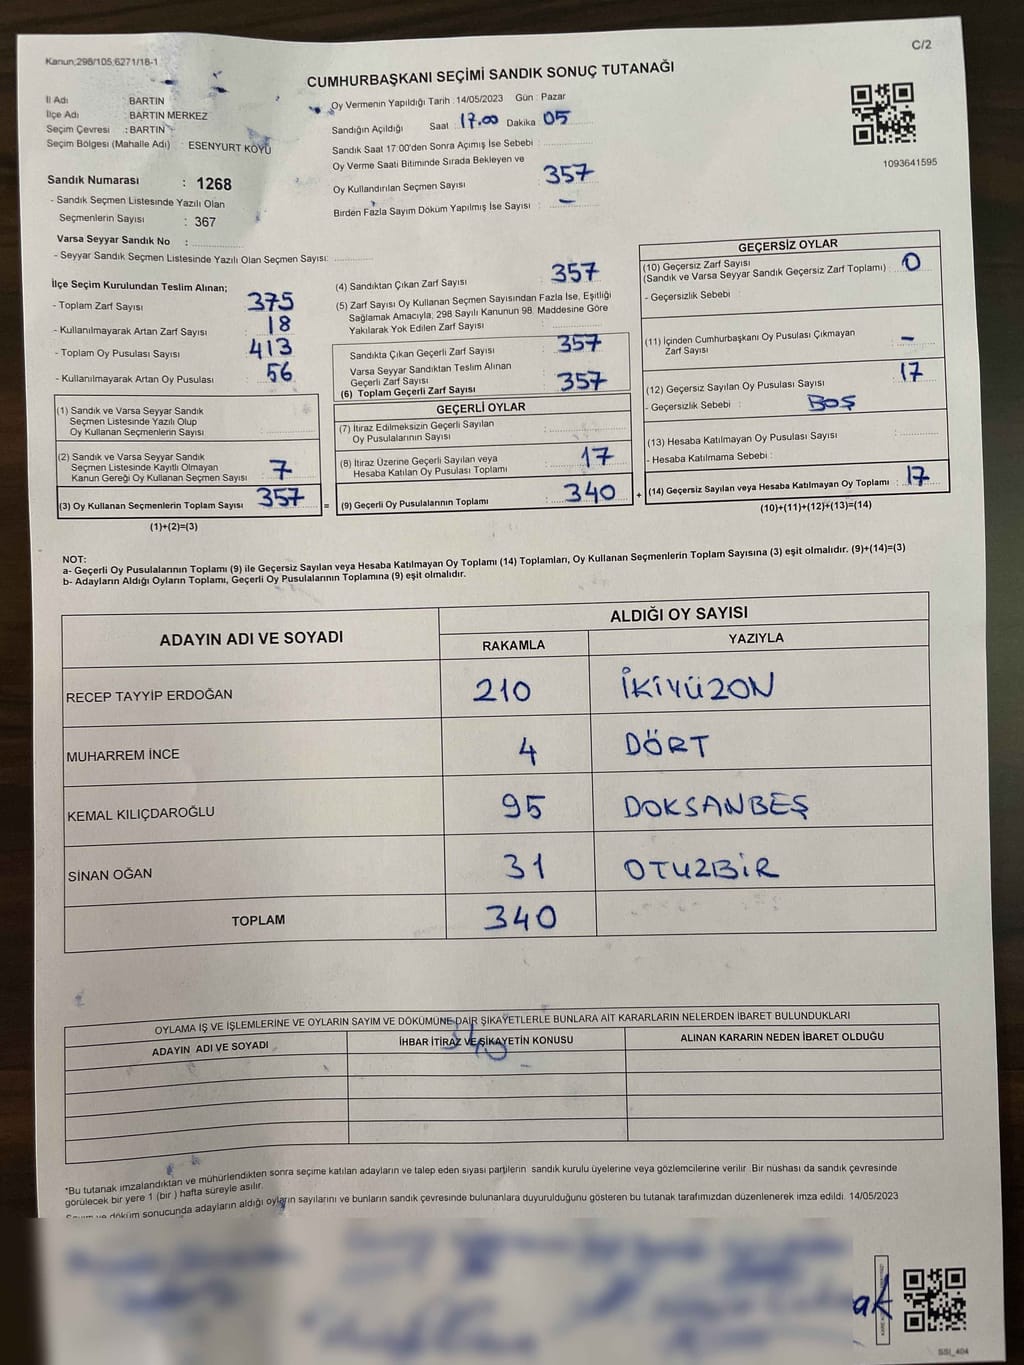 C/2
Kanun;298/105;6271/18-1
CUMHURBAŞKANI SEÇİMİ SANDIK SONUÇ TUTANAĞI
İl Adı : BARTIN
İlçe Adı : BARTIN MERKEZ
Seçim Çevresi : BARTIN
Seçim Bölgesi (Mahalle Adı) : ESENYURT KÖYÜ
Sandık Numarası : 1268
- Sandık Seçmen Listesinde Yazılı Olan
Seçmenlerin Sayısı : 367
Varsa Seyyar Sandık No :
- Seyyar Sandık Seçmen Listesinde Yazılı Olan Seçmen Sayısı:
Oy Vermenin Yapıldığı Tarih : 14/05/2023 Gün : Pazar
Sandığın Açıldığı Saat 17.00 Dakika 05
Sandık Saat 17:00'den Sonra Açımış İse Sebebi :
Oy Verme Saati Bitiminde Sırada Bekleyen ve
Oy Kullandırılan Seçmen Sayısı 357
Birden Fazla Sayım Döküm Yapılmış İse Sayısı : -
1093641595
İlçe Seçim Kurulundan Teslim Alınan;
- Toplam Zarf Sayısı 375
- Kullanılmayarak Artan Zarf Sayısı : 18
- Toplam Oy Pusulası Sayısı : 413
- Kullanılmayarak Artan Oy Pusulası : 56
(1) Sandık ve Varsa Seyyar Sandık
Seçmen Listesinde Yazılı Olup
Oy Kullanan Seçmenlerin Sayısı :
(2) Sandık ve Varsa Seyyar Sandık
Seçmen Listesinde Kayıtlı Olmayan
Kanun Gereği Oy Kullanan Seçmen Sayısı : 7
(3) Oy Kullanan Seçmenlerin Toplam Sayısı : 357 =
(1)+(2)=(3)
(4) Sandıktan Çıkan Zarf Sayısı : 357
(5) Zarf Sayısı Oy Kullanan Seçmen Sayısından Fazla İse, Eşitliği
Sağlamak Amacıyla; 298 Sayılı Kanunun 98. Maddesine Göre
Yakılarak Yok Edilen Zarf Sayısı :
Sandıkta Çıkan Geçerli Zarf Sayısı : 357
Varsa Seyyar Sandıktan Teslim Alınan
Geçerli Zarf Sayısı
(6) Toplam Geçerli Zarf Sayısı : 357
GEÇERLİ OYLAR
(7) İtiraz Edilmeksizin Geçerli Sayılan
Oy Pusulalarının Sayısı :
(8) İtiraz Üzerine Geçerli Sayılan veya
Hesaba Katılan Oy Pusulası Toplamı : 17
(9) Geçerli Oy Pusulalarının Toplamı : 340 +
GEÇERSİZ OYLAR
(10) Geçersiz Zarf Sayısı
(Sandık ve Varsa Seyyar Sandık Geçersiz Zarf Toplamı) : 0
- Geçersizlik Sebebi :
(11) İçinden Cumhurbaşkanı Oy Pusulası Çıkmayan
Zarf Sayısı : -
(12) Geçersiz Sayılan Oy Pusulası Sayısı : 17
- Geçersizlik Sebebi : BOŞ
(13) Hesaba Katılmayan Oy Pusulası Sayısı :
- Hesaba Katılmama Sebebi :
(14) Geçersiz Sayılan veya Hesaba Katılmayan Oy Toplamı : 17
(10)+(11)+(12)+(13)=(14)
NOT:
a- Geçerli Oy Pusulalarının Toplamı (9) ile Geçersiz Sayılan veya Hesaba Katılmayan Oy Toplamı (14) Toplamları, Oy Kullanan Seçmenlerin Toplam Sayısına (3) eşit olmalıdır. (9)+(14)=(3)
b- Adayların Aldığı Oyların Toplamı, Geçerli Oy Pusulalarının Toplamına (9) eşit olmalıdır.
ADAYIN ADI VE SOYADI
ALDIĞI OY SAYISI
RAKAMLA YAZIYLA
RECEP TAYYİP ERDOĞAN 210 İKİYÜZON
MUHARREM İNCE 4 DÖRT
KEMAL KILIÇDAROĞLU 95 DOKSANBEŞ
SİNAN OĞAN 31 OTUZBİR
TOPLAM 340
OYLAMA İŞ VE İŞLEMLERİNE VE OYLARIN SAYIM VE DÖKÜMÜNE DAİR ŞİKAYETLERLE BUNLARA AİT KARARLARIN NELERDEN İBARET BULUNDUKLARI
ADAYIN ADI VE SOYADI İHBAR İTİRAZ VE ŞİKAYETİN KONUSU ALINAN KARARIN NEDEN İBARET OLDUĞU
340
*Bu tutanak imzalandıktan ve mühürlendikten sonra seçime katılan adayların ve talep eden siyasi partilerin sandık kurulu üyelerine veya gözlemcilerine verilir. Bir nüshası da sandık çevresinde
görülecek bir yere 1 (bir ) hafta süreyle asılır.
Sayım ve döküm sonucunda adayların aldığı oyların sayılarını ve bunların sandık çevresinde bulunanlara duyurulduğunu gösteren bu tutanak tarafımızdan düzenlenerek imza edildi. 14/05/2023
ak
SSI_404